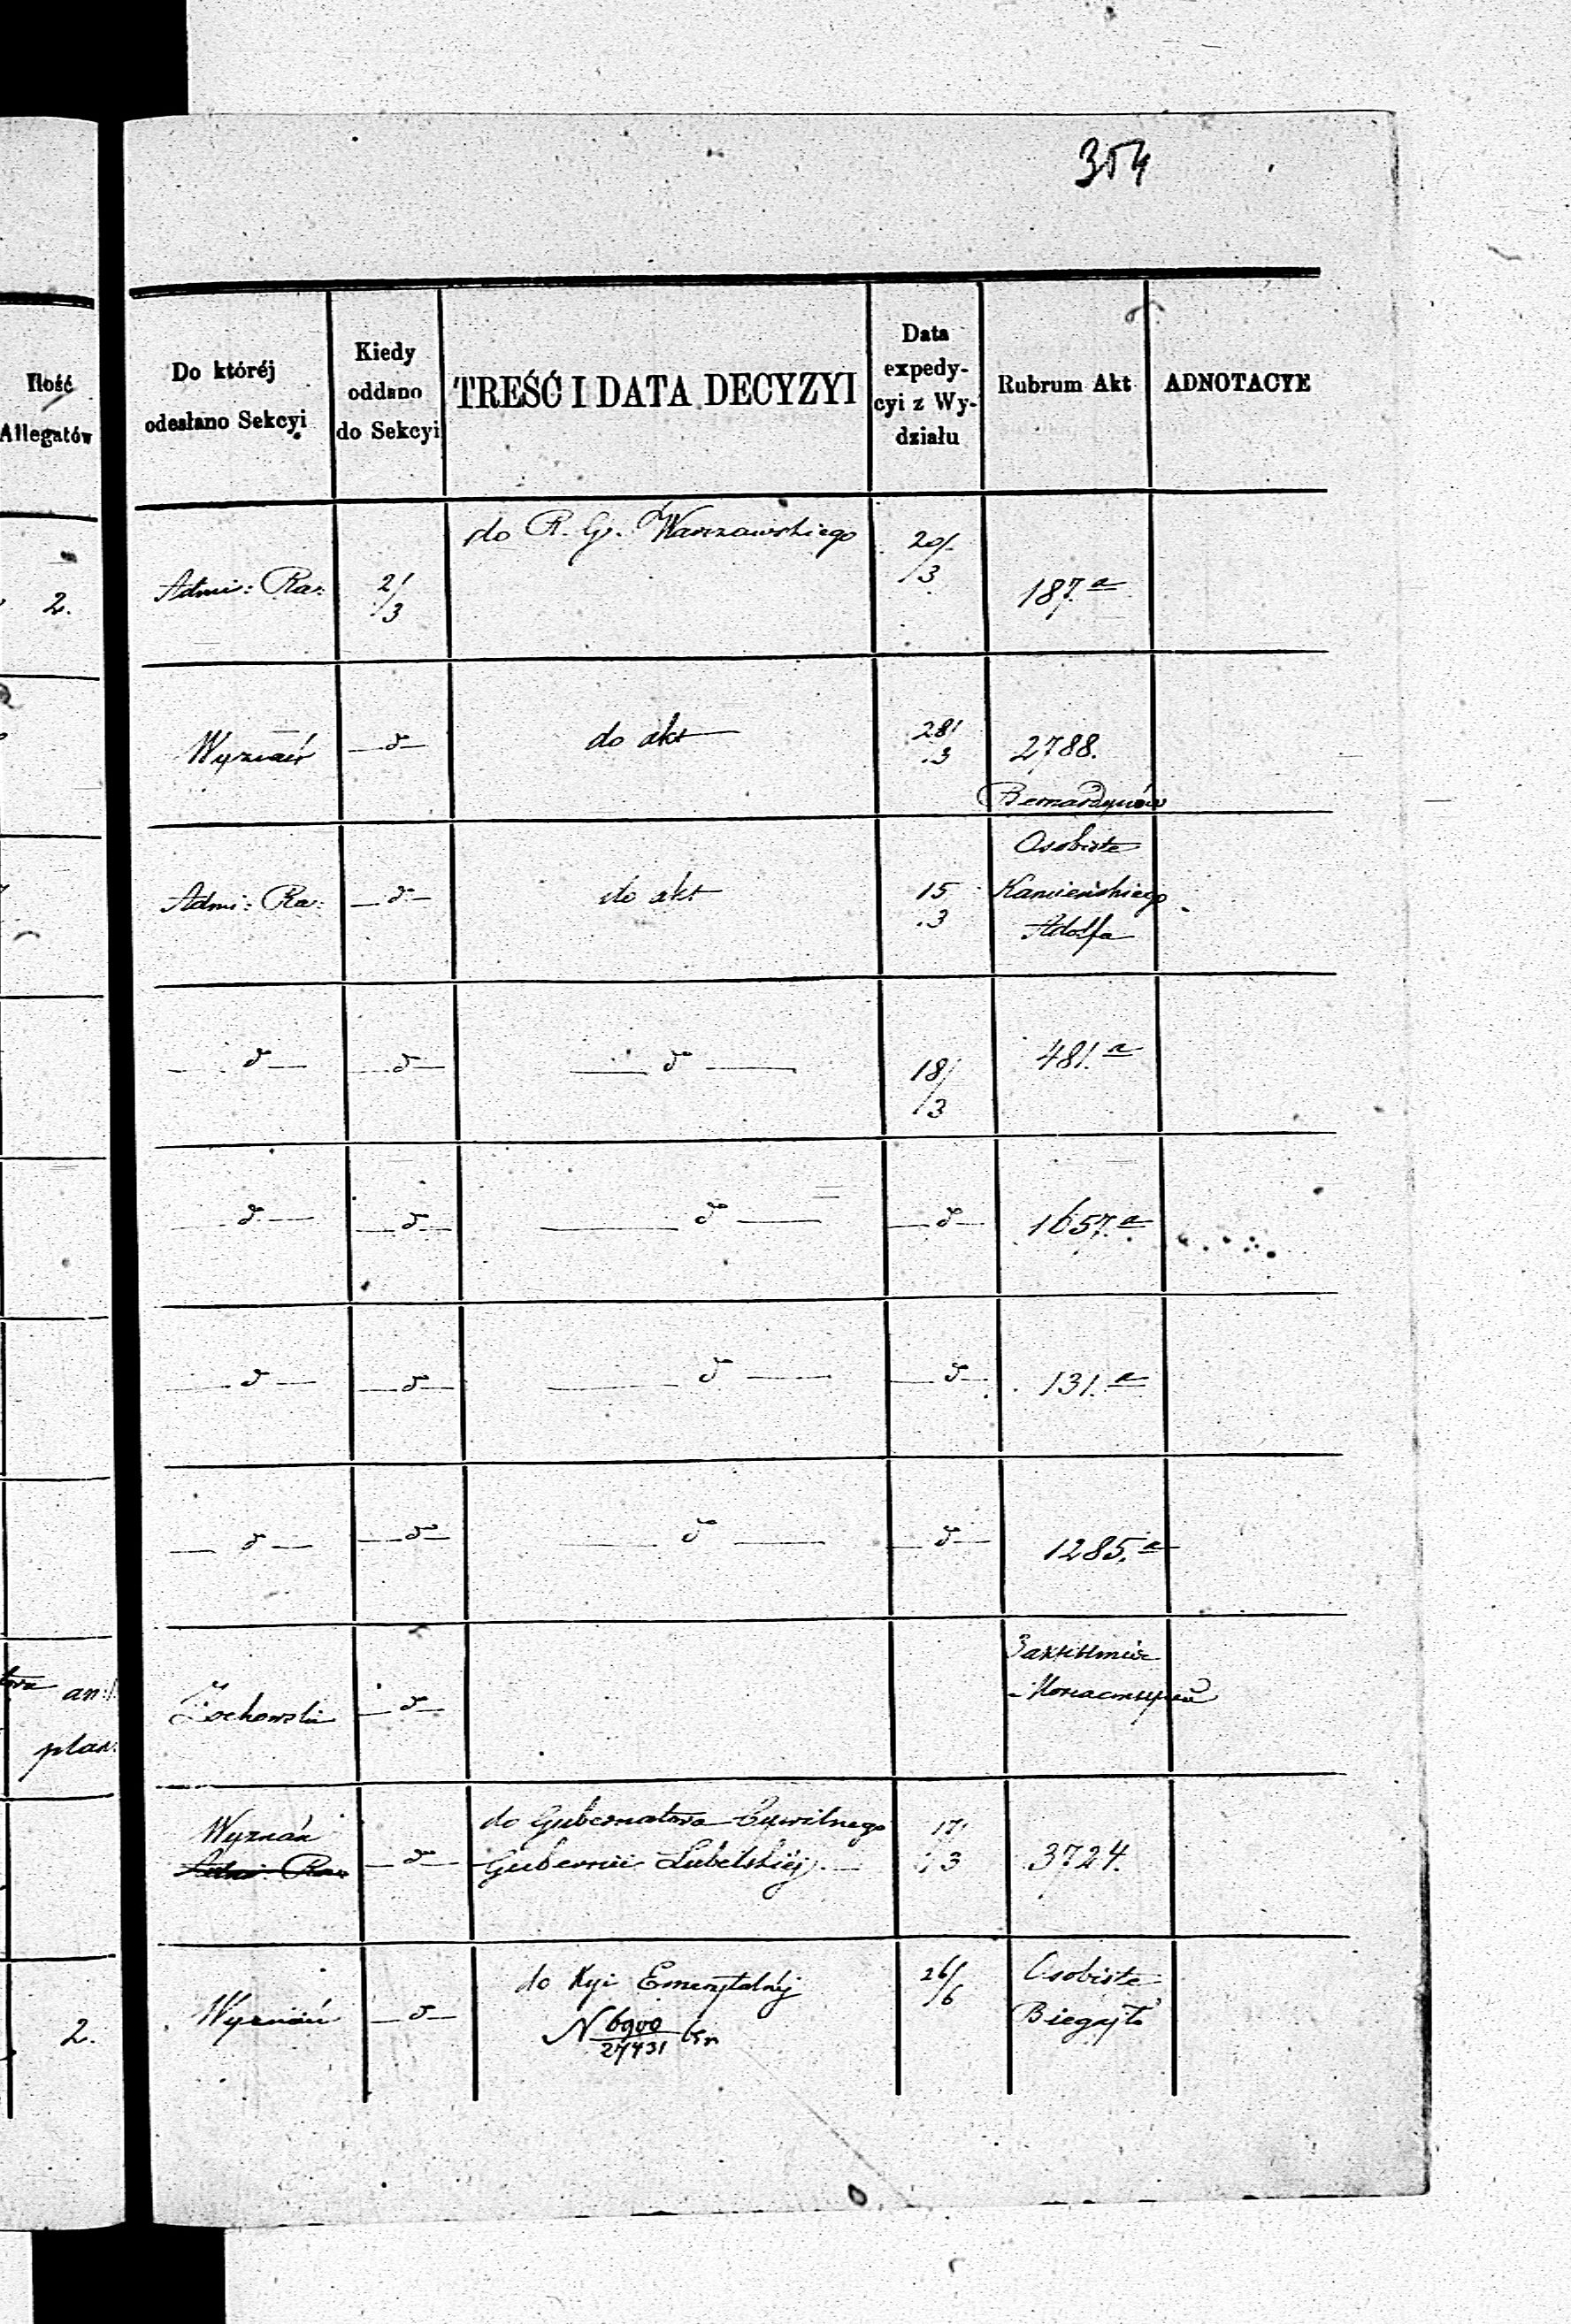 354
Ilość
Allegatów
Do któréj
odesłano Sekcyi
Kiedy
oddano
do Sekcyi
TREŚĆ I DATA DECYZYI
Data
expedy-
cyi z Wy-
działu
Rubrum Akt
ADNOTACYE
2.
Admi: Ra:
2/3
do R. G. Warszawskiego
20/3
187.a
Wyznań
do
do akt
28/3
2788.
Bernardynów
Admi: Ra:
do
do akt
15/3
Osobiste
Kamieńskiego
Adolfa
do
do
do
18/3
481.a
do
do
do
do
1657.a
do
do
do
do
131.a
do
do
do
do
1285.a
an:
plan.
Żochowski
do
Закрытия
Монастырей
Wyznań
Admi: Ra:
do
do Gubernatora Cywilnego
Gubernii Lubelskiéj
17/3
3724.
2.
Wyznań
do
do Kyi Emerytalnéj
N 6900/27431
26/6
Osobiste
Biegajło